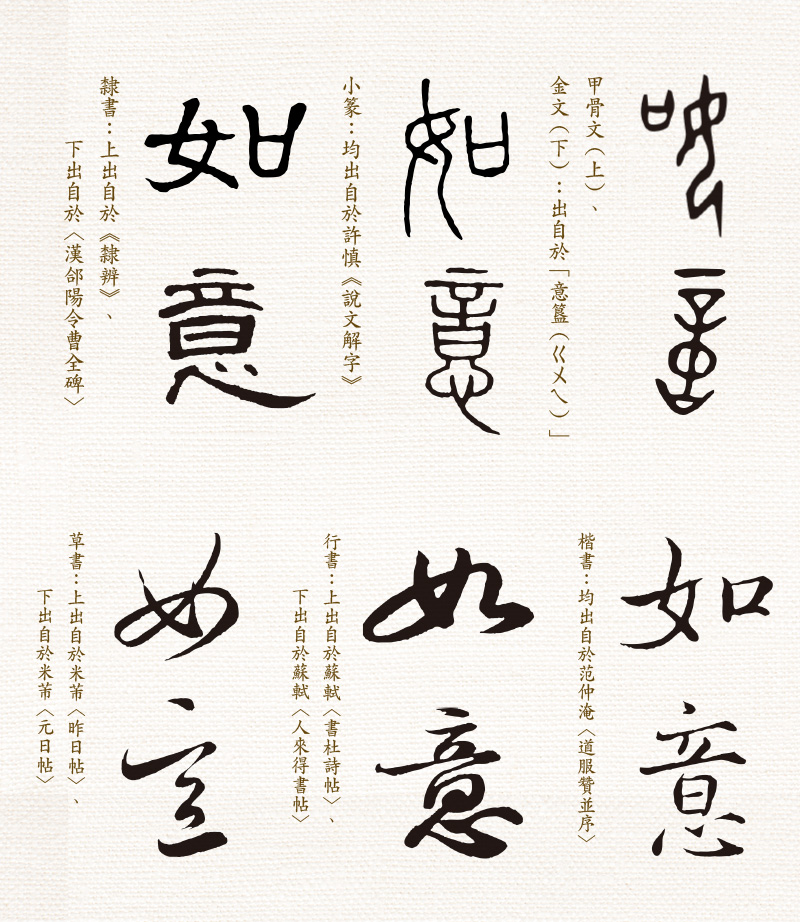 如意
甲骨文（上）、
金文（下）：出自於「意簋（ㄍㄨㄟ）」
如意
小篆：均出自於許慎《說文解字》
如意
隸書：上出自於《隸辨》、
下出自於〈漢郃陽令曹全碑〉
如意
楷書：均出自於范仲淹〈道服贊並序〉
如意
行書：上出自於蘇軾〈書杜詩帖〉、
下出自於蘇軾〈人來得書帖〉
如意
草書：上出自於米芾〈昨日帖〉、
下出自於米芾〈元日帖〉